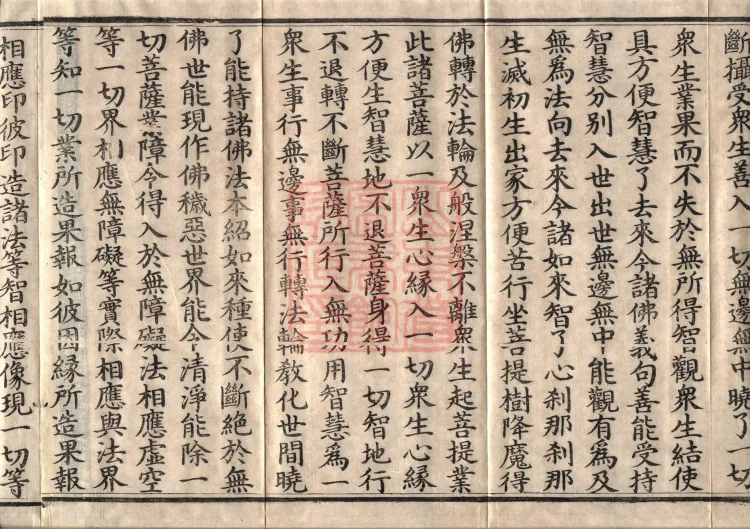 斷攝受衆生善入一切無邊無中曉了一切
衆生業果而不失於無所得智觀衆生結使
具方便智慧了去來今諸佛義句善能受持
智慧分別入世出世無邊無中能觀有爲及
無爲法向去來今諸如來智了心刹那刹那
生滅初生出家方便苦行坐菩提樹降魔得
佛轉於法輪及般涅槃不離衆生起菩提業
此諸菩薩以一衆生心緣入一切衆生心緣
方便生智慧地不退菩薩身得一切智地行
不退轉不斷菩薩所行入無功用智慧爲一
衆生事行無邊事無行轉法輪教化世間曉
了能持諸佛法本紹如來種使不斷絕於無
佛世能現作佛穢惡世界能令清淨能除一
切菩薩業障令得入於無障礙法相應虛空
等一切界相應無障礙等實際相應與法界
等知一切業所造果報如彼因緣所造果報
相應印彼印造諸法等智相應像現一切等